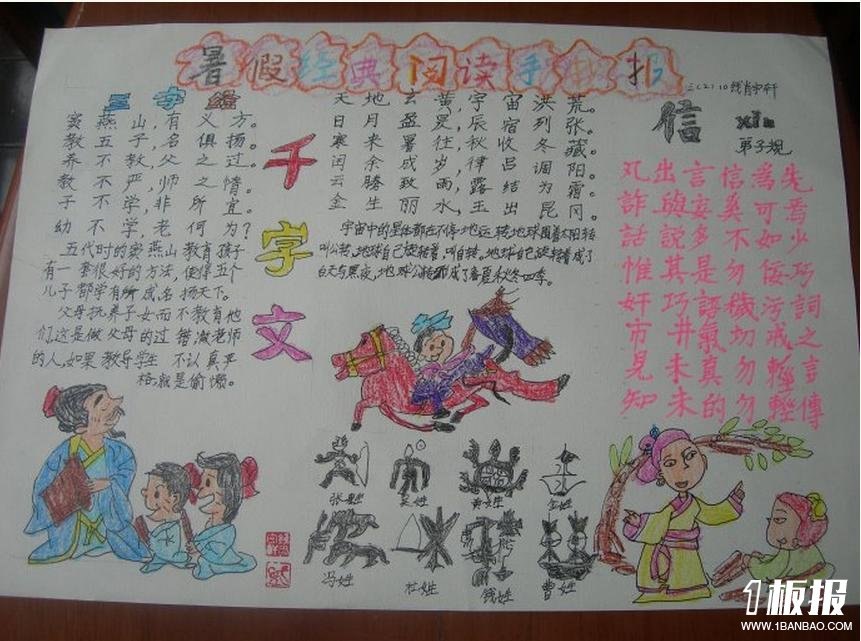 暑假经典阅读手抄报
三(2)10钱肖宇轩
三字经
窦燕山,有义方。
教五子,名俱扬。
养不教,父之过。
教不严,师之惰。
子不学,非所宜。
幼不学,老何为?
五代时的窦燕山教育孩子
有一套很好的方法,使得五个
儿子都学有所成名扬天下。
父母抚养子女而不教育他
们,这是做父母的过错减老师
的人,如果教导学生不认真严
格,就是偷懒。
千字文
天地玄黄,宇宙洪荒。
日月盈昃,辰宿列张。
寒来暑往,秋收冬藏。
闰余成岁,律吕调阳。
云腾致雨,露结为霜。
金生丽水,玉出昆冈。
宇宙中的星体都在不停地运转,地球围着太阳转
叫公转,地球自己旋转着,叫自转,地球自己旋转着成了
白天与黑夜,地球公转形成了春夏秋冬四季。
信 xìn
弟子规
凡出言信為先
詐與妄奚可焉
話說多不如少
惟其是勿佞巧
奸巧語穢污詞
市井氣切戒之
見未真勿輕言
知未的勿輕傳
张姓
吴姓
黄姓
金姓
冯姓
杜姓
钱姓
曹姓
1板报
WWW.1BANBAO.COM